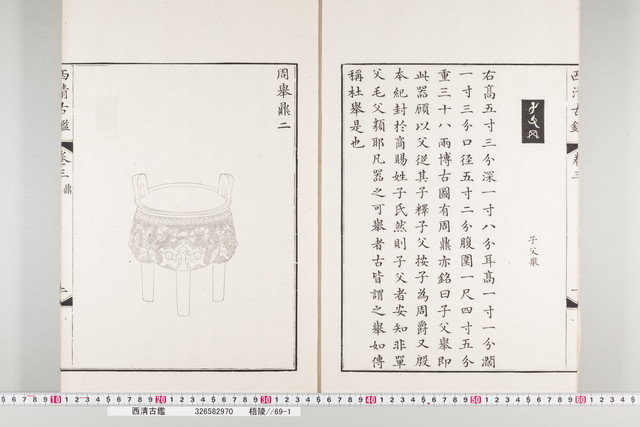 子父舉
右高五寸三分深一寸八分耳高一寸一分濶
一寸三分口径五寸二分腹圍一尺四寸五分
重三十八兩博古圖有周鼎亦銘曰子父舉即
此器顧以父從其子釋子父按子為周爵又殷
本紀封於商賜姓子氏然則子父者安知非單
父毛父類耶凡器之可舉者古皆謂之舉如傳
稱杜舉是也
西清古鑑 卷三
周舉鼎二
西清古鑑 卷三 鼎
西清古鑑 326582970 梧陵//69-1